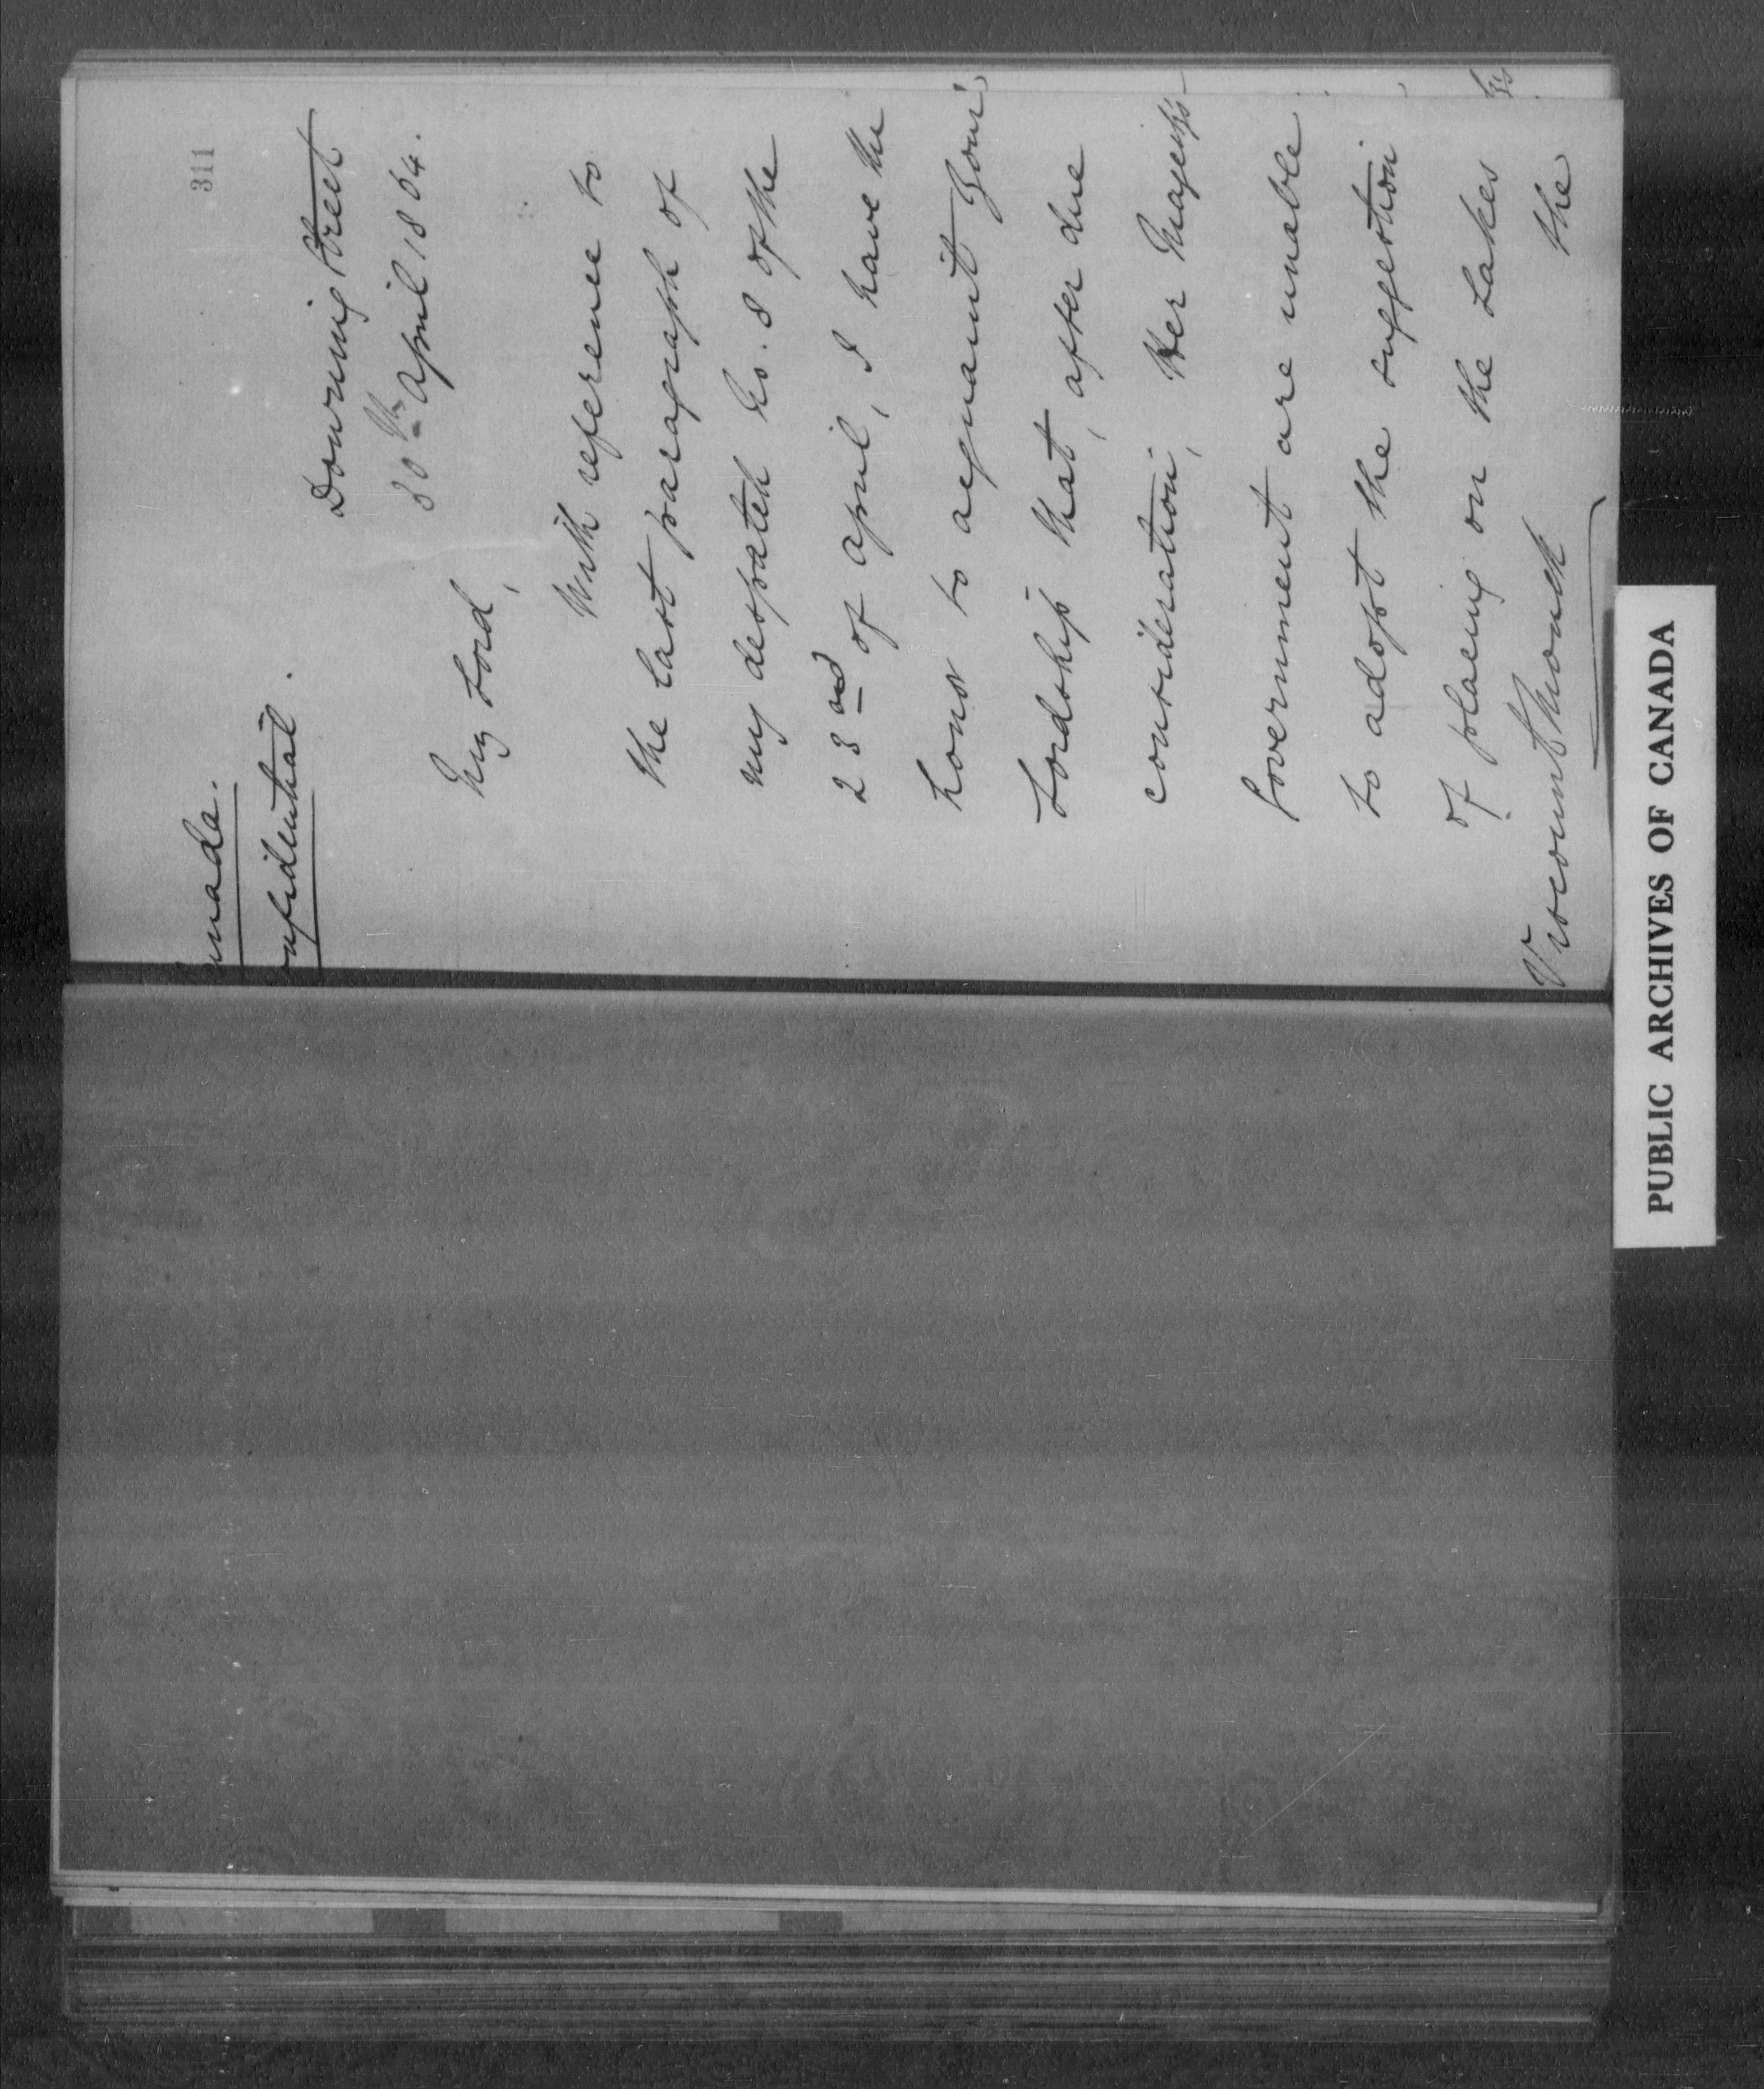 311
anada.
onfidential.
Downing Street
30th April 1864.
My Lord,
With reference to
the last paragraph of
my despatch No. 8 of the
23rd of April, I have the
honor to acquaint Your
Lordship that, after due
consideration, Her Majesty's
Government are unable
to adopt the suggestion
of placing on the Lakes
the
Viscount Monck
PUBLIC ARCHIVES OF CANADA